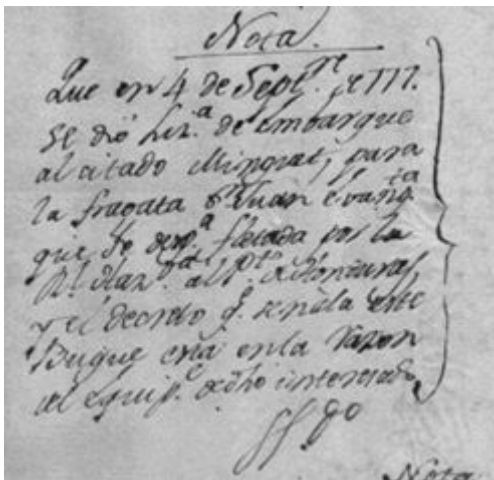 Nota.
Que en 4 de Septre. de 777.
se dió Lizª. de embarque
al citado Mingrat, para
la fragata Sn. Juan Evangta.
que se despª. fletada por la
Rl. Hazda. al Pto. de Honduras,
y el decreto qe. señala este
Buque está en la razon
del equipe. de dho interesado
Nota